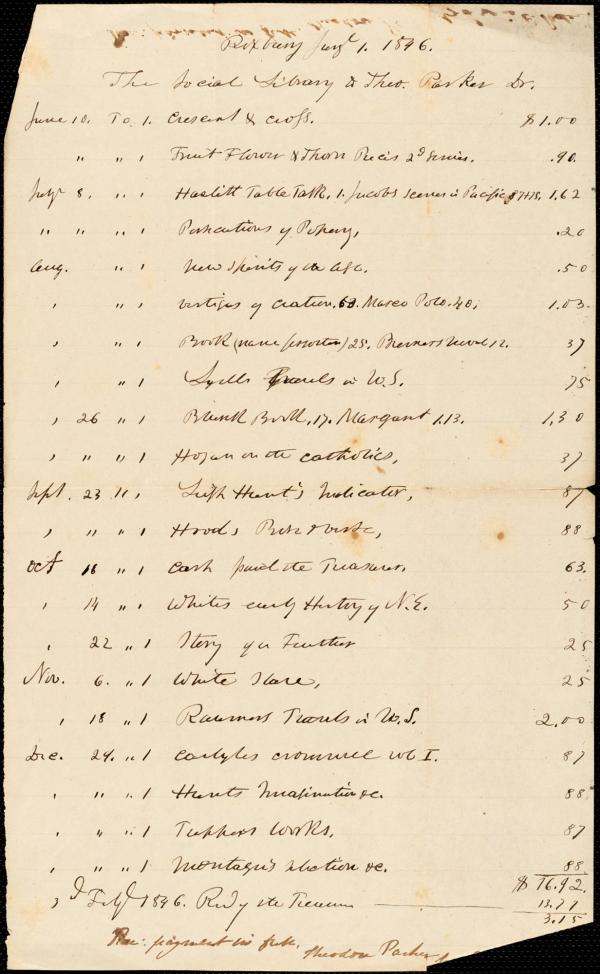 Roxbury Jany 1. 1846.
The Social Library to Theo. Parker Dr.
June 10. To 1. Crescent & Cross. $1.00
" " 1 Fruit Flower & Thorn Pieces 2d Series. .90
July 8. " 1 Hazlitt Table Talk. 1. Jacobs Scenes in Pacific 87+75. 1.62
" " " 1 Persecutions of Popery, .20
Aug. " 1 New Spirits of the Age. .50
" 1 Vestiges of Creation. 63. Marco Polo. 40. 1.03.
" " 1 Book (name forgotten) 25. Bremers Novel 12. 37
" " 1 Lyells Travels in U.S. 75
, 26 " 1 Blank Book, 17. Margaret 1.13. 1,30
, " " 1 Hogan on the Catholics, 37
Sept. 23 " 1 Leigh Hunt's Indicator, 87
, " " 1 Hoods Prose & Verse, 88
Oct 18 " 1 Cash paid the Treasurer, 63.
, 14 " 1 Whites early History of N.E. 50
, 22 " 1 Story of a Feather 25
Nov. 6. " 1 White Slave, 25
, 18 " 1 Raumers Travels in U.S. 2.00
Dec. 24. " 1 Carlyles Cromwell vol I. 87
, " " 1 Hunts Imagination &c. 88
, " " 1 Tuppers Works, 87
, " " 1 Montagu's Selection &c. 88
$ 16.92.
Feby 1846. Recd of the Treasurer 13.77
3.15
Rec: payment in full. Theodore Parker